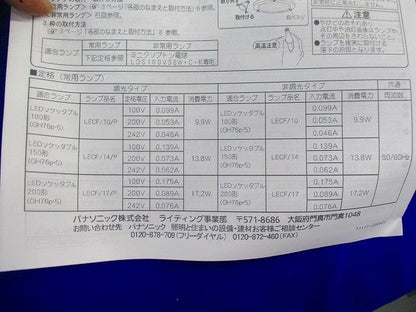 夜用ランプ）☞3ページ「各部のなまえと取付方法」6参照。
非常用ランプ）右図参照。
3.枠の取付方法
☞3ページ「各部のなまえと取付方法」8参照。
取付ける
取付ネジ
高温注意
注意
やけどのおそれあり
点灯中や消灯直後はランプや
その周辺をさわらないでください
ランプを確実に取付
適合ランプ 常用ランプ 非常用ランプ
下記定格参照 ミニクリプトン電球
LDS100V36W・C・K専用
■定格（常用ランプ）
調光タイプ 非調光タイプ 共通
適合ランプ ランプ品名 定格電圧 入力電流 消費電力 適合ランプ ランプ品名 入力電流 消費電力 周波数
LEDソケッタブル 100形 (GH76p-5) LECF/10/P 100V 0.099A 9.9W LEDソケッタブル 100形 (GH76p-5) LECF/10 0.099A 9.9W 50/60Hz
200V 0.053A 0.053A
242V 0.046A 0.046A
LEDソケッタブル 150形 (GH76p-5) LECF/14/P 100V 0.139A 13.8W LEDソケッタブル 150形 (GH76p-5) LECF/14 0.139A 13.8W
200V 0.073A 0.073A
242V 0.062A 0.062A
LEDソケッタブル 200形 (GH76p-5) LECF/17/P 100V 0.175A 17.2W LEDソケッタブル 200形 (GH76p-5) LECF/17 0.175A 17.2W
200V 0.089A 0.089A
242V 0.076A 0.076A
パナソニック株式会社 ライティング事業部 〒571-8686 大阪府門真市門真1048
お問い合わせ先 パナソニック 照明と住まいの設備・建材お客様ご相談センター
0120-878-709(フリーダイヤル) 0120-872-460(FAX)